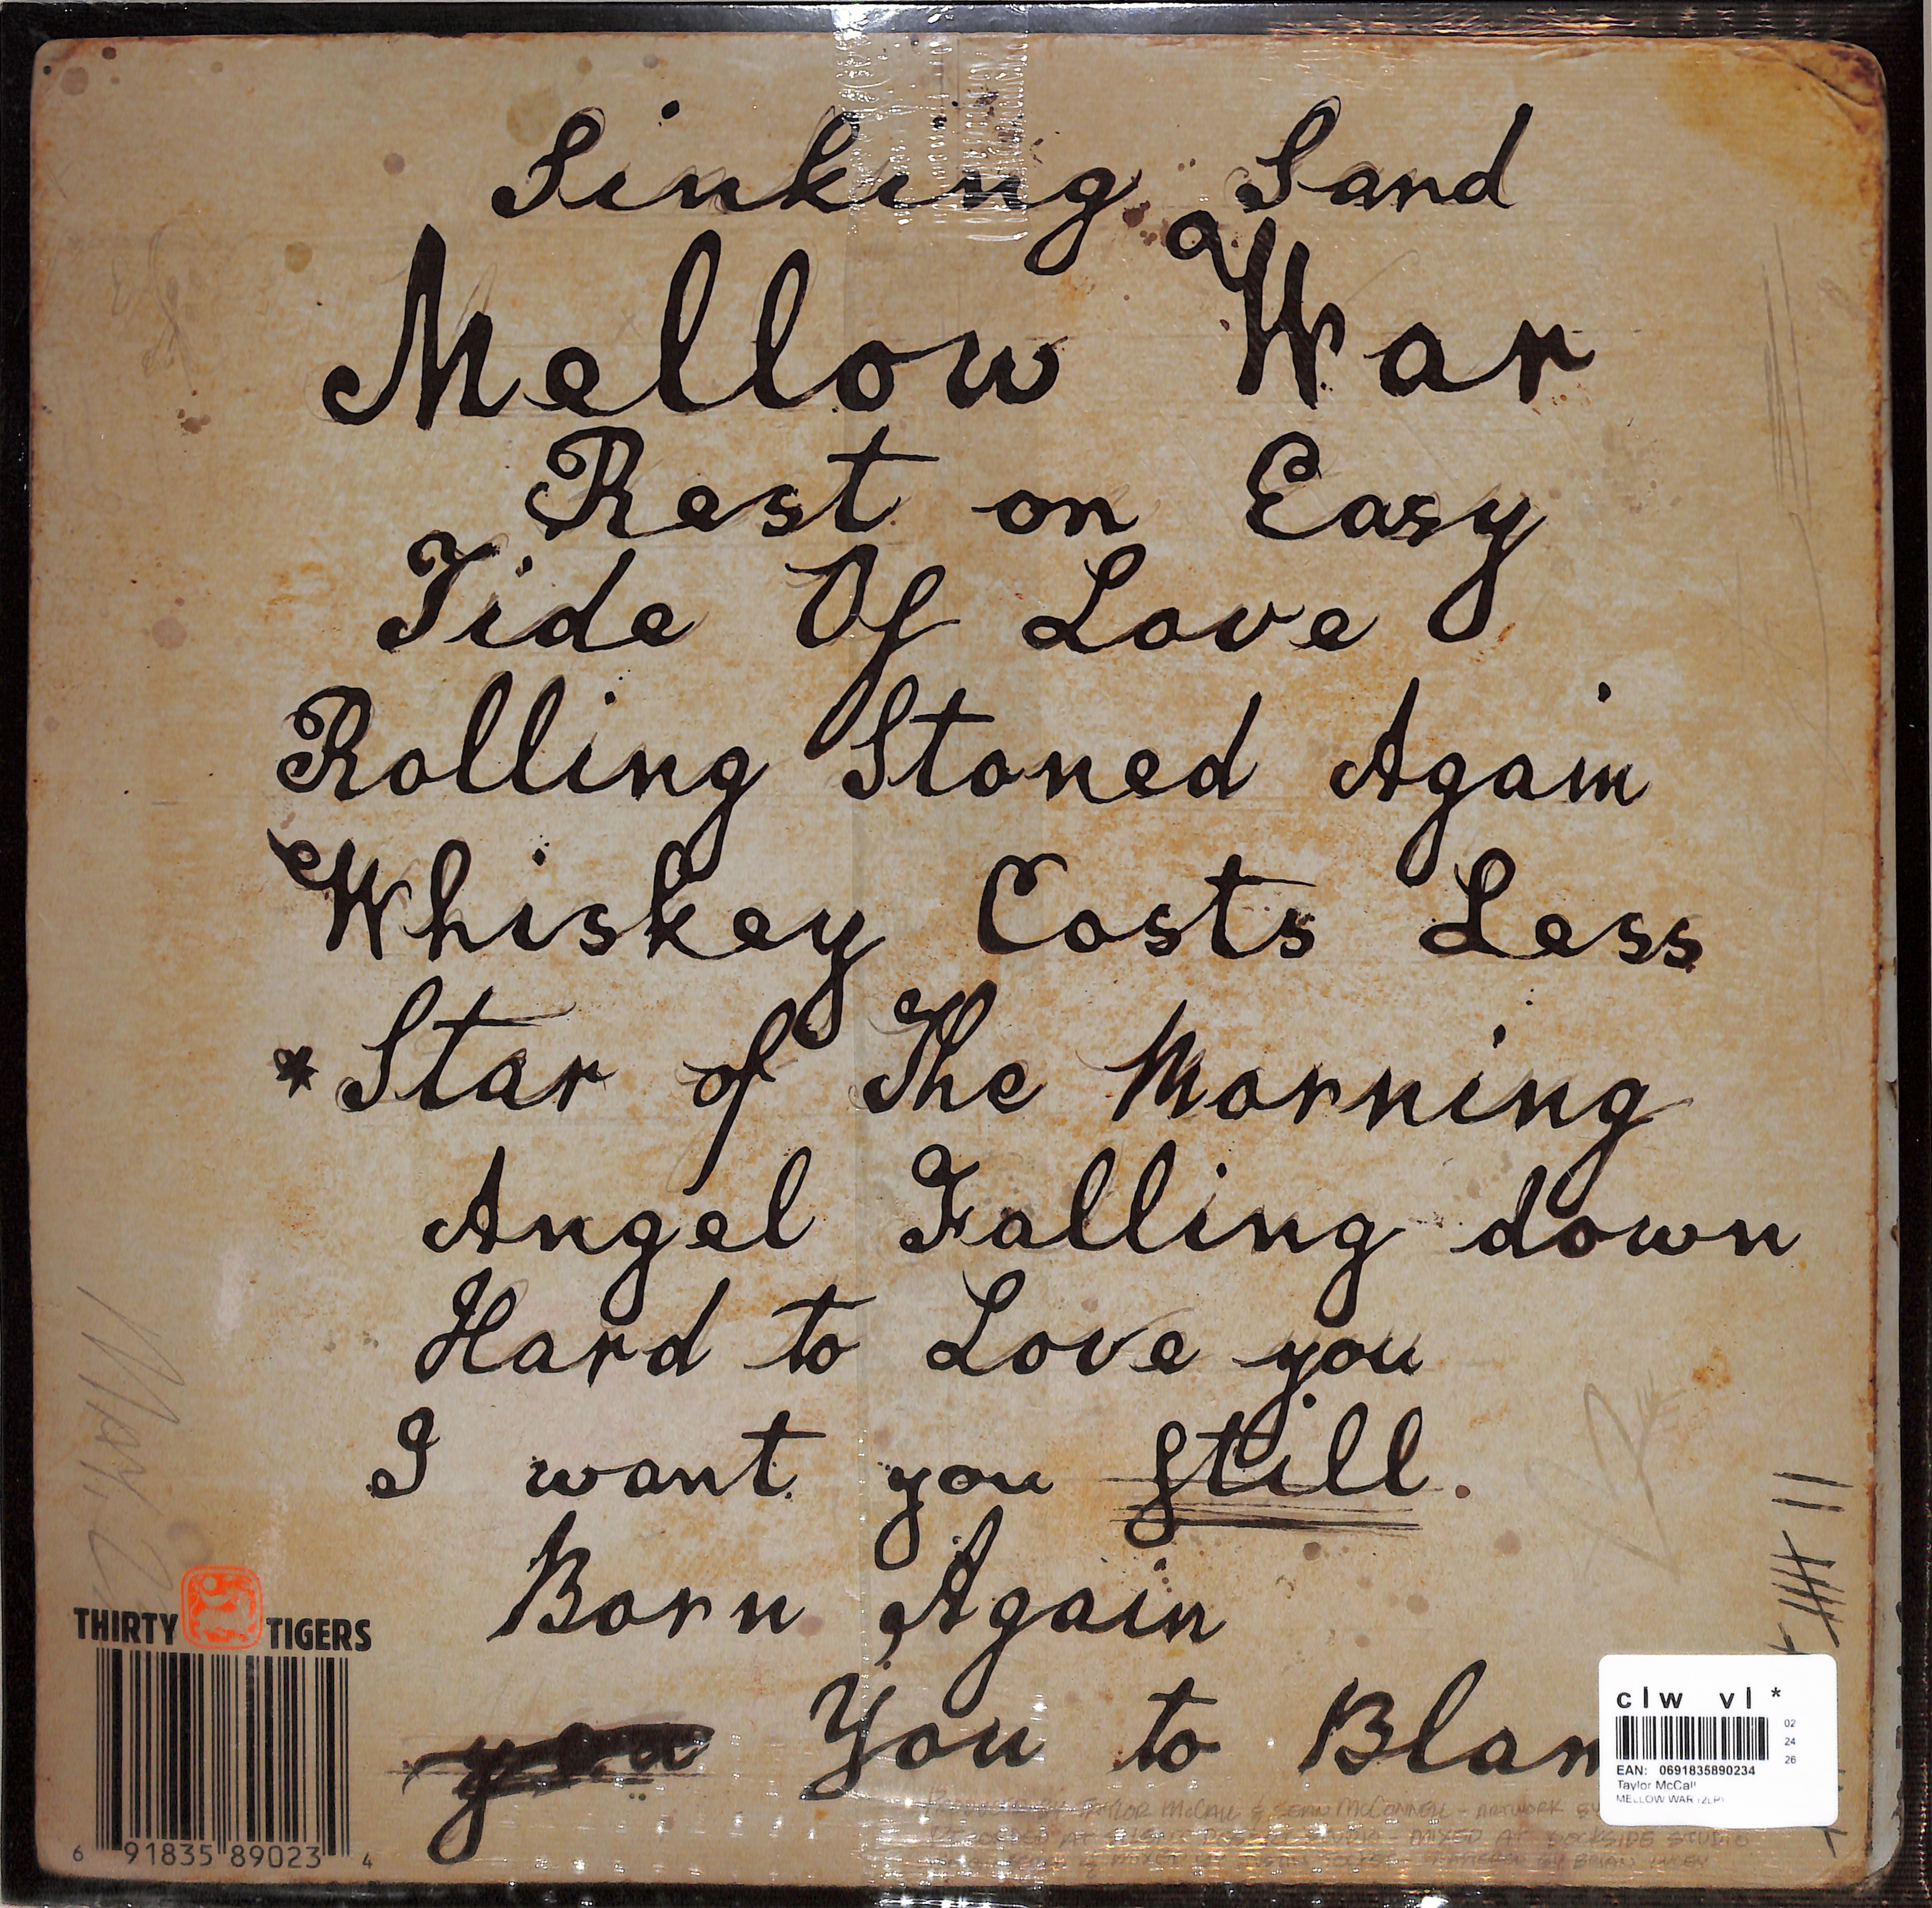 Sinking Sand
Mellow War
Rest on Easy
Tide Of Love
Rolling Stoned Again
Whiskey Costs Less
* Star of The Morning
Angel Falling down
Hard to Love you
I want you still.
Born Again
you You to Blam
THIRTY TIGERS
6 91835 89023 4
clw vl *
02
24
26
EAN: 0691835890234
Taylor McCall
MELLOW WAR (2LP)
TAYLOR MCCALL & SEAN MCCONNELL - ARTWORK BY
RECORDED AT SILENT DESERT STUDIO - MIXED AT DOCKSIDE STUDIO
BY BRIAN